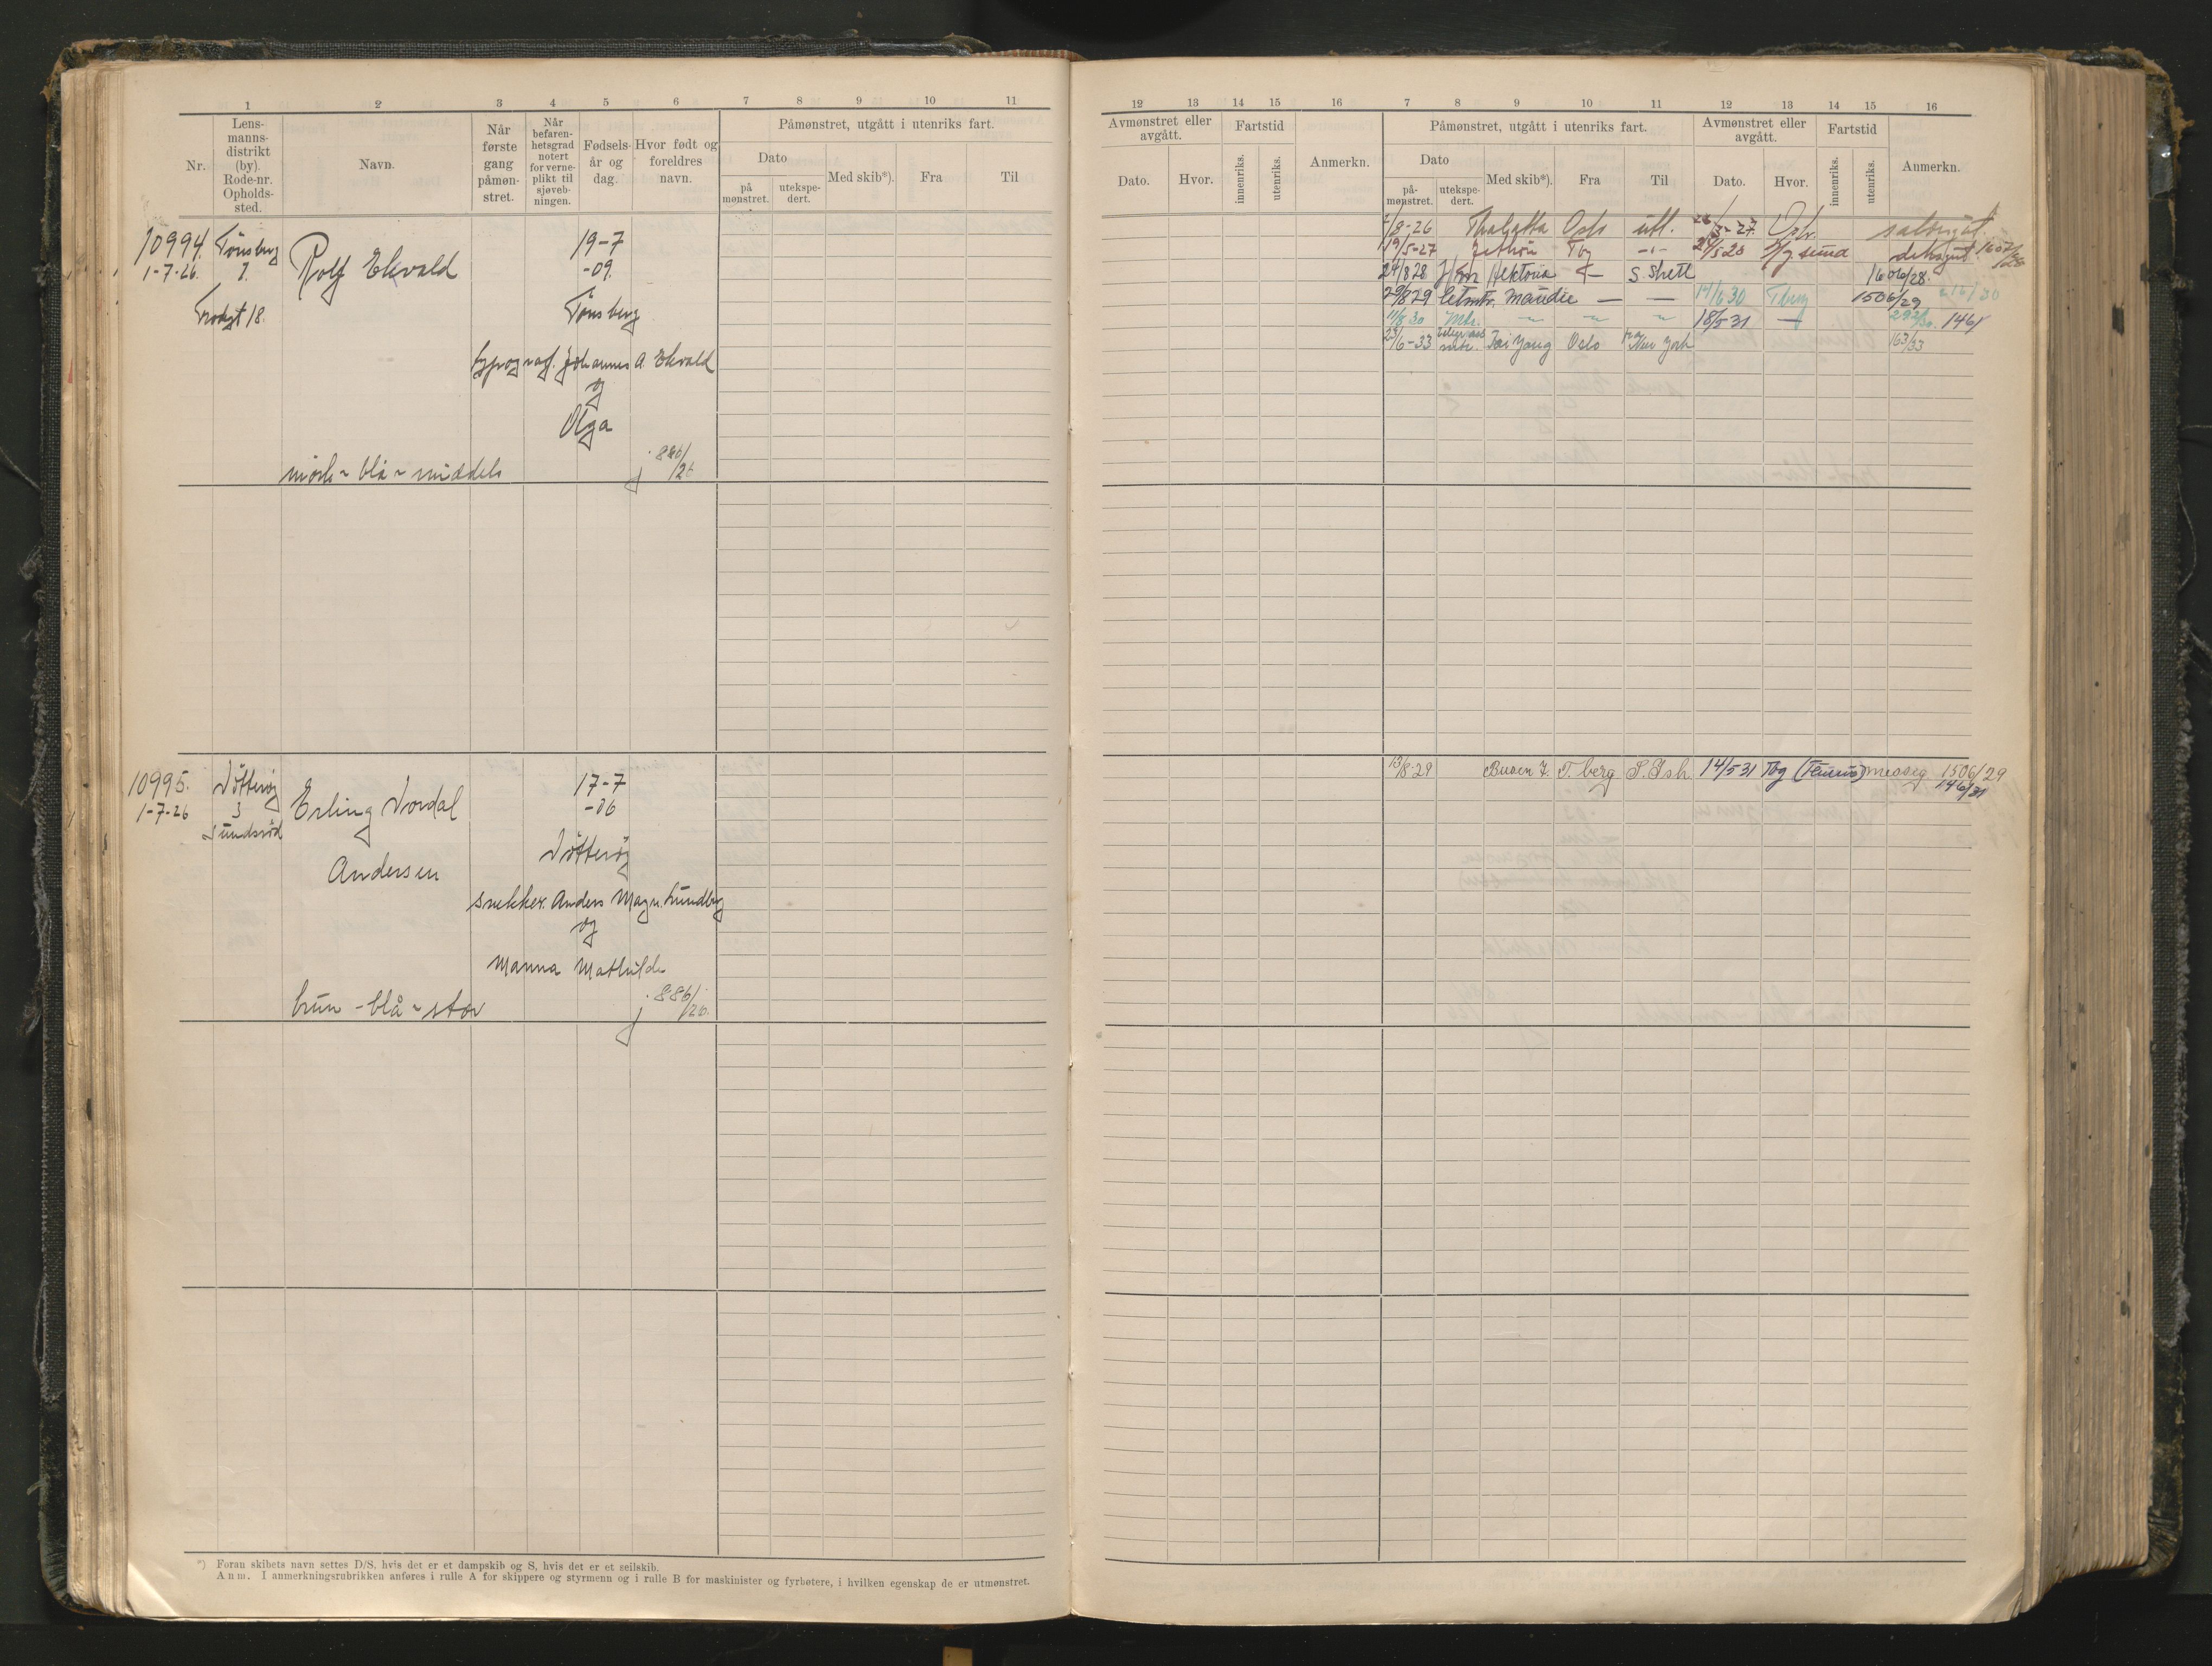 1 2 3 4 5 6 7 8 9 10 11
Nr.
Lens-
manns-
distrikt
(by).
Rode-nr.
Opholds-
sted.
Navn.
Når
første
gang
påmøn-
stret.
Når
befaren-
hetsgrad
notert
for verne-
plikt til
sjøveb-
ningen.
Fødsels-
år og
dag.
Hvor født og
foreldres
navn.
Påmønstret, utgått i utenriks fart.
Dato
på
mønstret.
utekspe-
dert.
Med skib*).
Fra
Til
10994. Tønsberg
1-7-26. 7.
Rolf Ekvald
19-7
-09.
Tønsberg
typograf. Johannes A. Ekvald
og
Olga
mørk - blå - middels
j. 886/26
10995. Nøtterøy
1-7-26 3
Sundsrød
Erling Nordal
Andersen
17-7
-06
Nøtterøy
snekker. Anders Magn. Lundby
og
Manna Mathilde
brun - blå - stor
j. 886/26.
*) Foran skibets navn settes D/S, hvis det er et dampskib og S, hvis det er et seilskib.
Anm. I anmerkningsrubrikken anføres i rulle A for skippere og styrmenn og i rulle B for maskinister og fyrbøtere, i hvilken egenskap de er utmønstret.
12 13 14 15 16 7 8 9 10 11 12 13 14 15 16
Avmønstret eller
avgått.
Dato.
Hvor.
Fartstid
innenriks.
utenriks.
Anmerkn.
Påmønstret, utgått i utenriks fart.
Dato
på-
mønstret.
utekspe-
dert.
Med skib*).
Fra
Til
Avmønstret eller
avgått.
Dato.
Hvor.
Fartstid
innenriks.
utenriks.
Anmerkn.
/8-26 Thalatta Oslo utl. -27. Oslo
19/5-27 Tbg -"- /5 28 dekksgut 1607/28
24/8 28 Hektoria S. Shetl 1606/28.
29/8 29 Maudie — — 14/6 30 Tberg 1506/29 216/30
11/8 30 Mtr. 18/5-31 — 292/30. 146/
/6-33 Tai Yang Oslo New York 163/33
13/8-29 Busen 7. T.berg S. Ish 14/5 31 Tbg messeg 1506/29
146/31